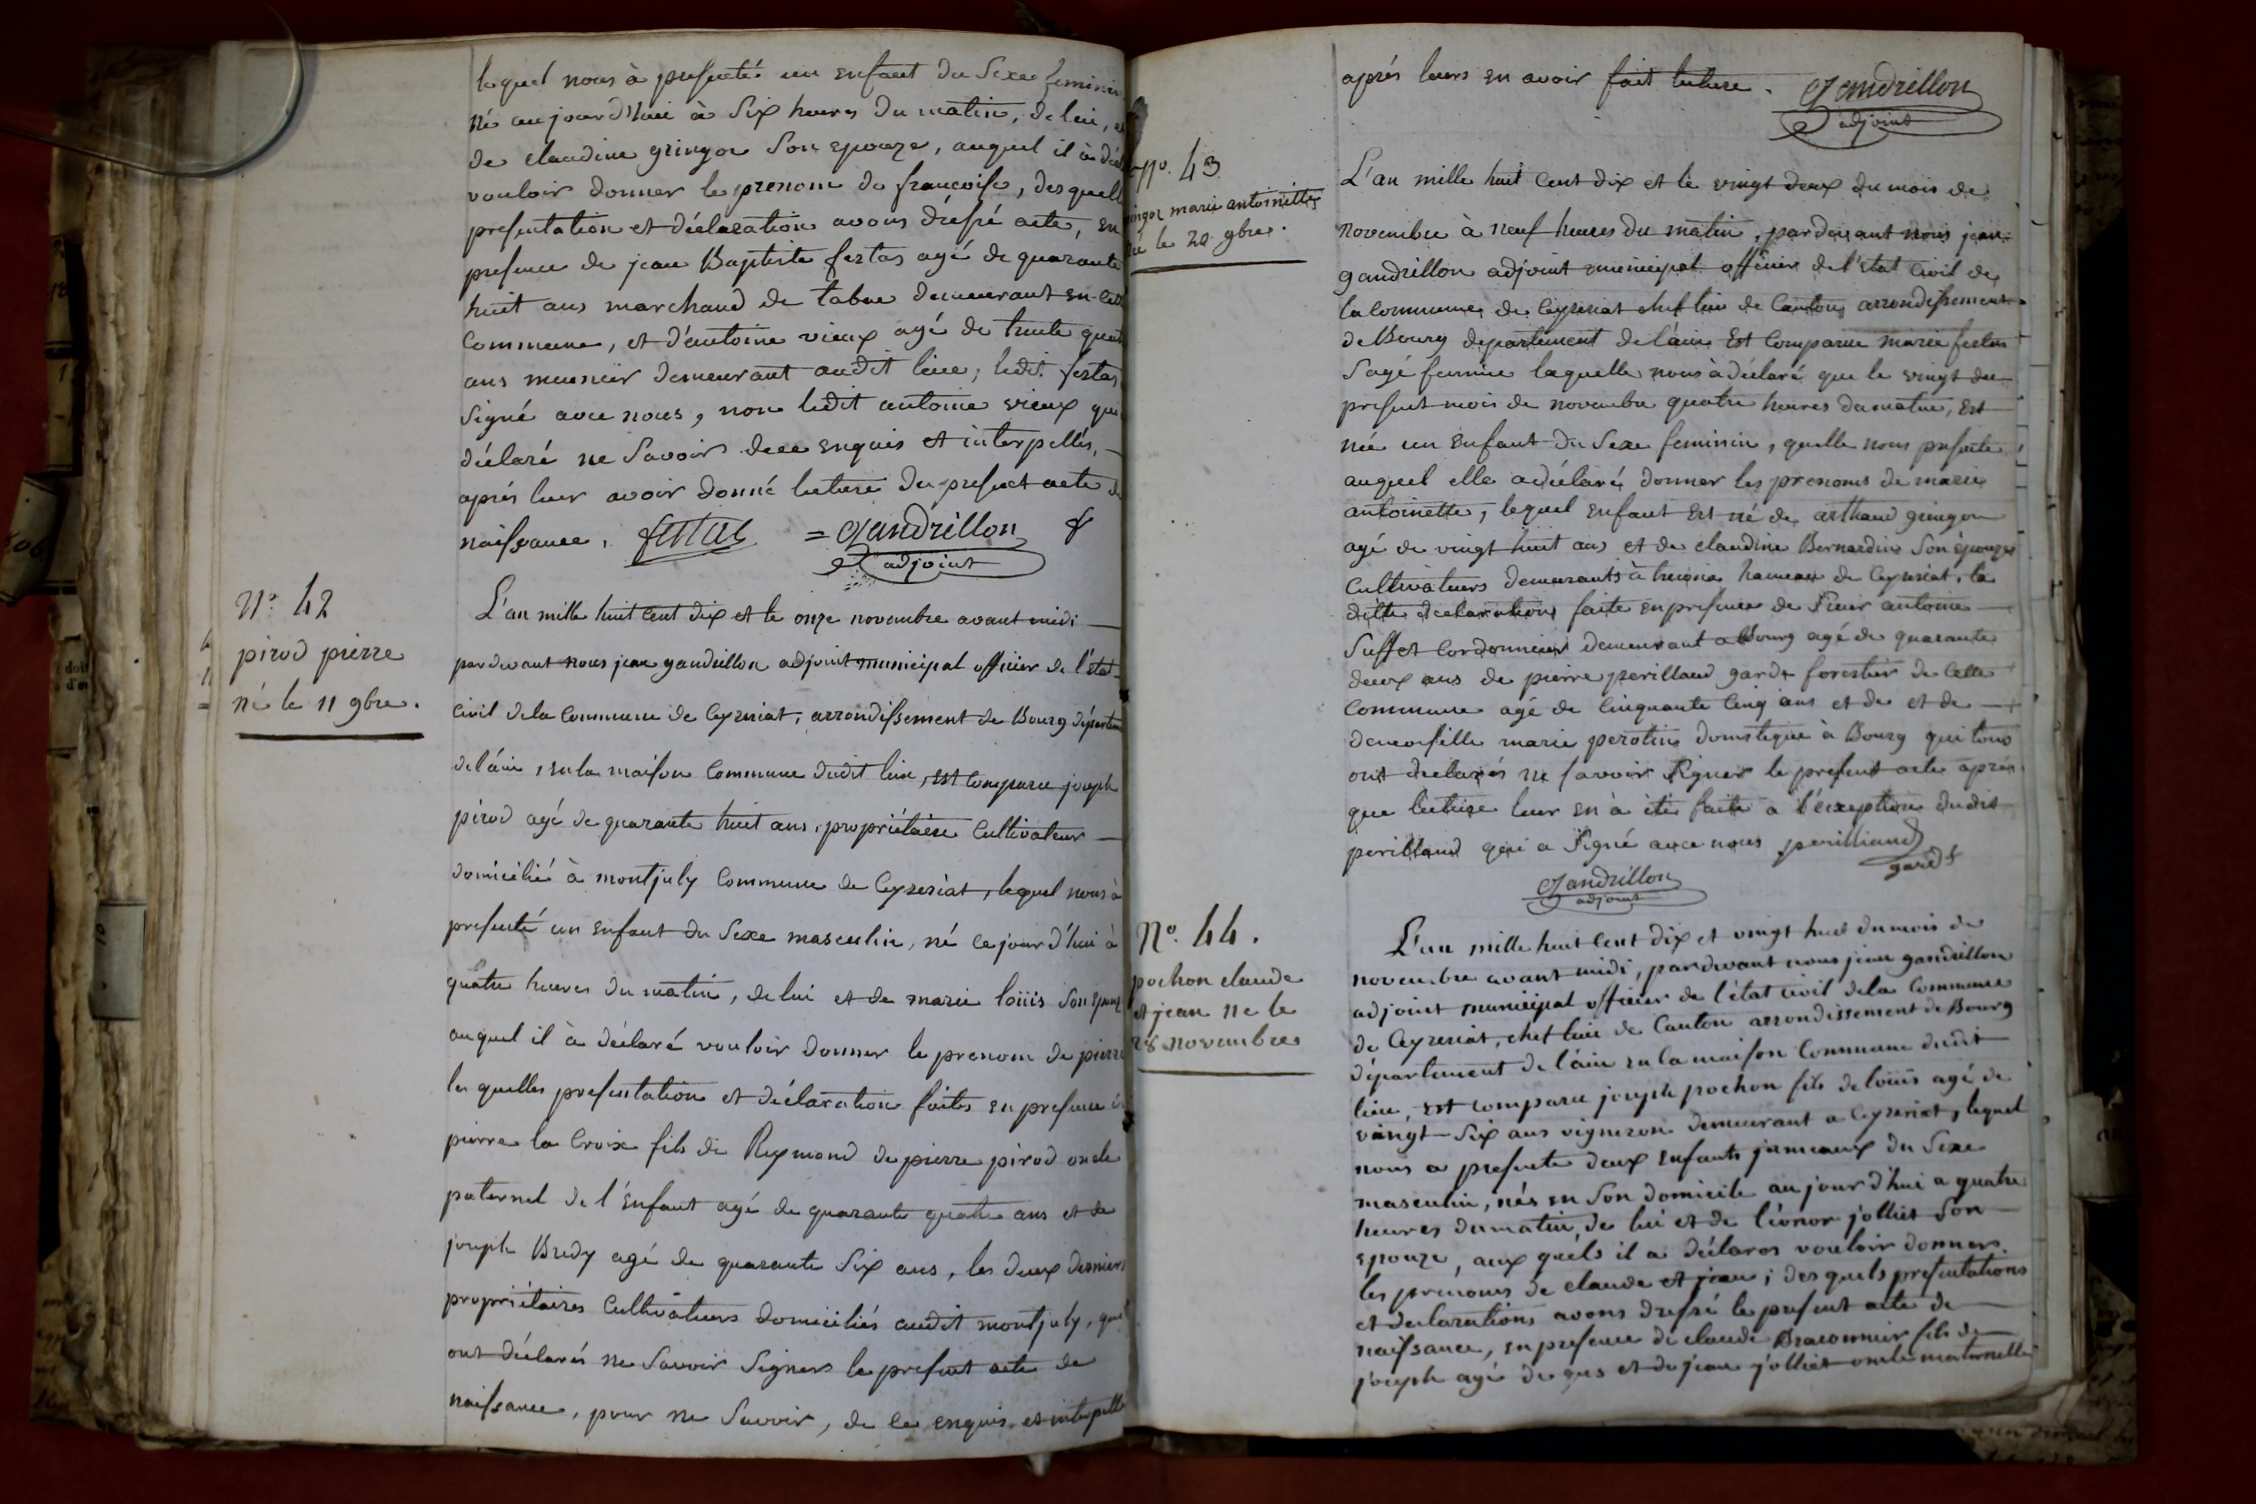 lequel nous à presenté un enfant du Sexe feminin
né aujourd'huie à Six heures du matin, de lui, et
de claudine gringoz Son epouze, auquel il à décl
vouloir donner le prenom de francoise, des quell
presentation et déclaration avons dréssé acte, en
presence de jean Baptiste festas agé de quarante
huit ans marchand de tabac demeurant en cett
Commune, et d'antoine vieux agé de trente quat
ans meuneir demeurant audit lieu, ledit festas
Signé avec nous, non ledit antoine vieux qui
déclaré ne Savoir dece enquis et interpellés,
aprés leur avoir donné lecture du present acte de
naissance. festas = Gandrillon
adjoint
N.° 42
pirod pierre
né le 11 9bre.
L'an mille huit Cent dix et le onze novembre avant midi
pardevant nous jean gandrillon adjoint municipal officier de l'état
Civil dela Commune de Ceyzeriat, arrondissement de Bourg départem
de l'áin, en la maison Commune dudit lieu, est Comparu joseph
pirod agé de quarante huit ans, propriétaire Cultivateur
domicilié à montjuly Commune de Ceyzeriat, lequel nous à
presenté un enfant du Sexe masculin, né ce jour d'hui à
quatre heures du matin, de lui et de marie loüis Son epouz
auquel il à déclaré vouloir donner le prenom de pierre
les quelles presentation et déclaration faites en presence de
pierre la Croix fils de Reymond de pierre pirod oncle
paternel de l'énfant agé de quarante quatre ans et de
joseph Bredy agé de quarante Six ans, les deux derniers
propriétaires Cultivateurs domiciliés audit montjuly, qui
ont déclarés ne Savoir Signers le present acte de
naissance, pour ne Savoir, de ce enquis et interpellé
aprés leurs en avoir fait lecture. Gandrillon
adjoint
N.° 43
gringoz marie antoinette
né le 20 9bre.
L'an mille huit Cent dix et le vingt deux du mois de
novembre à neuf heures du matin, pardevant nous jean
gandrillon adjoint municipal officier de l'état Civil de
la Commune de Ceyzeriat chef lieu de Canton arrondissement
de Bourg departement de l'áin Est Comparue marie festas
Sage femme laquelle nous à déclaré que le vingt du
present mois de novembre quatre heures du matin, est
née un enfant du Sexe feminin, quelle nous presente
auquel elle a déclaré donner les prenoms de marie
antoinette, lequel enfant est né de arthaud gringoz
agé de vingt huit ans et de claudine Bernardin Son epouze
Cultivateurs demeurants à hameau de Ceyzeriat, la
ditte declaration faite en presence de Sieur antoine
Suffet Cordonnier demeurant a Bourg agé de quarante
deux ans de pierre perilland garde forestier de Cette
Commune agé de Cinquante Cinq ans et de et de
demoiselle marie perotin domstique à Bourg qui tous
ont déclarés ne Savoir Signer le present acte aprés
que lecture leur en à été faite a l'exeption dudit
perilland qui a Signé avec nous perilliand
garde
Gandrillon
adjoint
N.° 44.
pochon claude
et jean né le
28 novembre
L'an mille huit Cent dix et vingt huit du mois de
novembre avant midi, pardevant nous jean gandrillon
adjoint municipal officier de l'état civil dela Commune
de Ceyzeriat, chef lieu de Canton arrondissement de Bourg
département de l'áin en la maison Commune dudit
lieu, est comparu joseph pochon fils de loüis agé de
vaingt-Six ans vigneron demeurant a Ceyzeriat, lequel
nous a presente deux enfants jumeaux du Sexe
masculin, nés en Son domicile aujourd'hui a quatre
heures du matin, de lui et de léonor jolliet Son
epouze, aux quels il a déclarer vouloir donner
les prenoms de claude et jean; des quels presentations
et declarations avons dressé le present acte de
naissance, en presence de claude Braconnier fils de
joseph agé de ans et de jean jolliet oncle maternelle